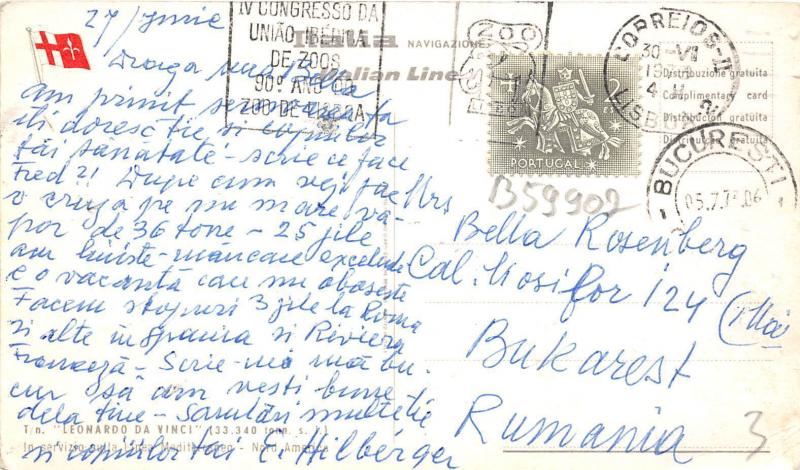 27/Junie
Draga
am primit
iti doresc tie si copiilor
tăi sanatate - scrie ce face
Fred?! Dupe cum vezi fac
o cruză pe un mare va-
por de 36 tone - 25 zile
am liniste - mâncare excelentă
e o vacantă care nu oboseste
Facem stopuri 3 zile la Roma
si alte in spania si Riviera
Franceză - Scrie-mi mă bu-
cur să am vesti bune
dela tine - Salutări multe tie
si copiilor tăi E. Hilberger
IV CONGRESSO DA
UNIÃO IBÉRICA
DE ZOOS
90º ANO DO
ZOO DE LISBOA
Italia NAVIGAZIONE
Italian Line
PORTUGAL
CORREIOS
30-VII
LISBOA
Distribuzione gratuita
Complimentary card
Distribucion gratuita
Distribution gratuite
BUCUREȘTI
05.7.74.06
B59902
Mrs
Bella Rosenberg
Cal. Mosilor 124
Bukarest
Rumania
3
T/n. "LEONARDO DA VINCI" (33.340 tonn. s. l.)
In servizio sulla Linea Mediterraneo - Nord America